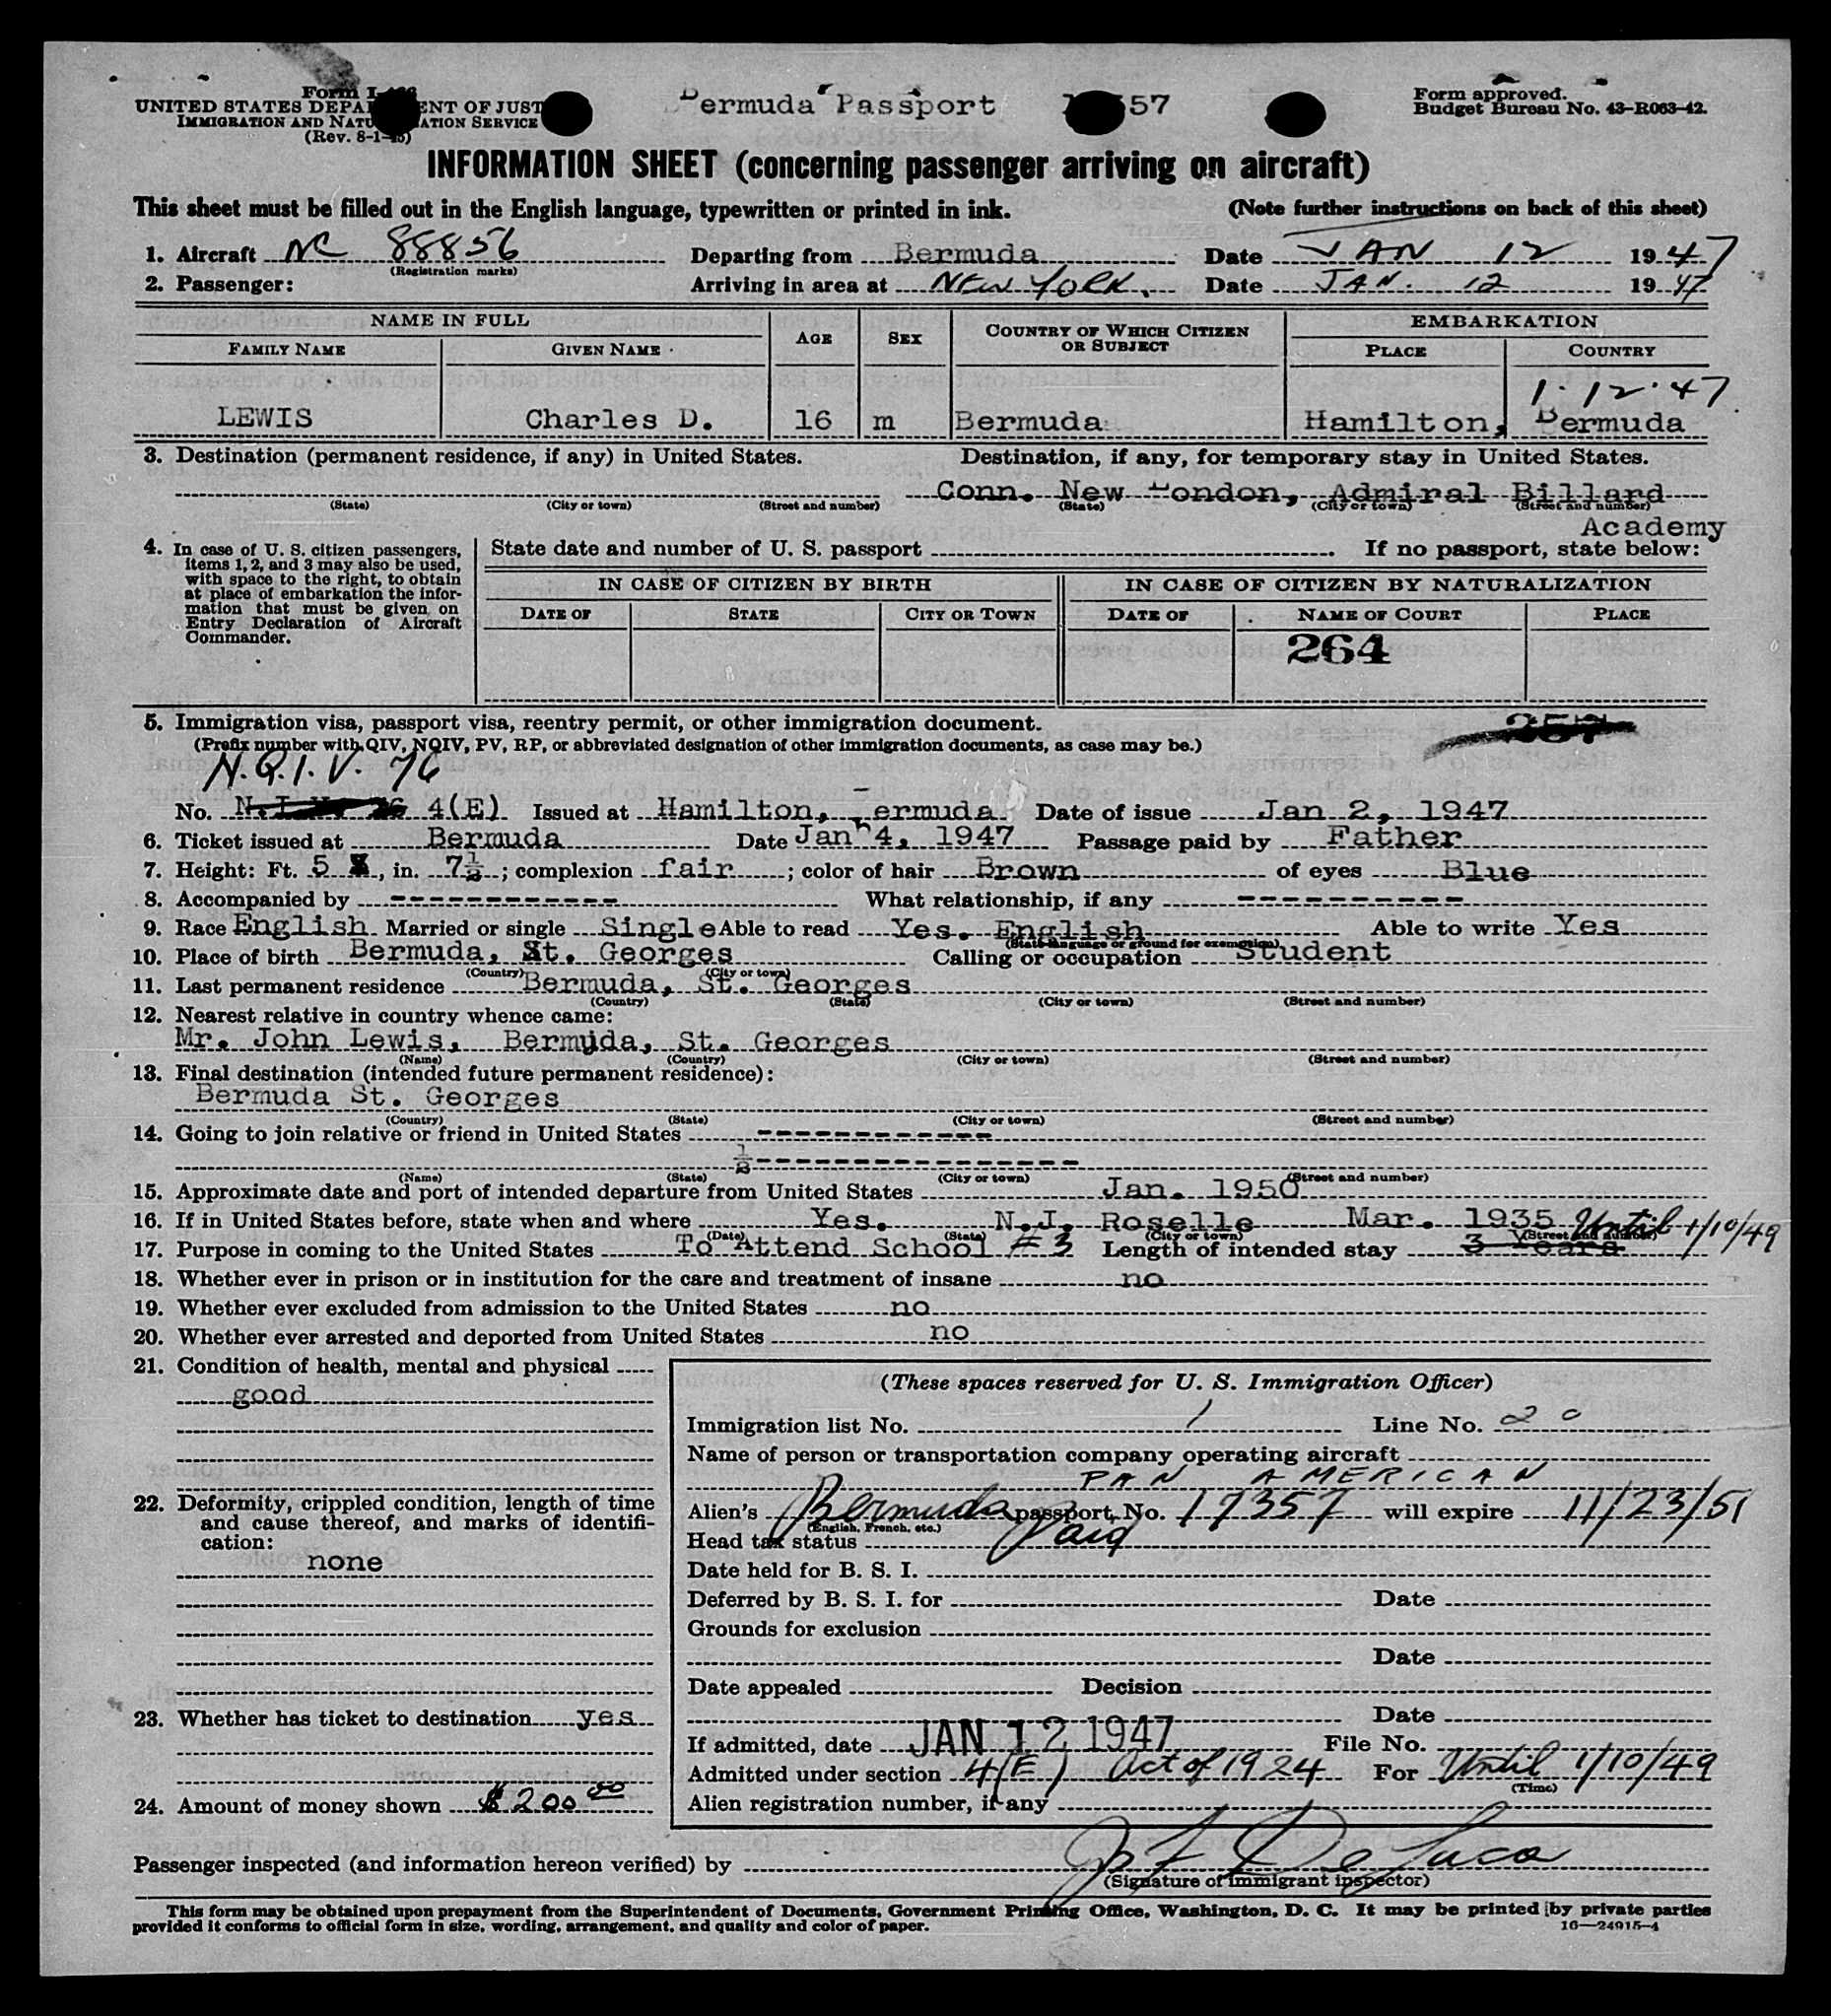 Form I-
UNITED STATES DEPA ENT OF JUST
IMMIGRATION AND NATU ATION SERVICE
(Rev. 8-1-45)
Bermuda Passport 57
Form approved.
Budget Bureau No. 43-R063-42.
INFORMATION SHEET (concerning passenger arriving on aircraft)
This sheet must be filled out in the English language, typewritten or printed in ink. (Note further instructions on back of this sheet)
1. Aircraft NC 88856 Departing from Bermuda Date JAN 12 1947
(Registration marks)
2. Passenger: Arriving in area at NEW YORK. Date JAN. 12 1947
NAME IN FULL AGE SEX COUNTRY OF WHICH CITIZEN OR SUBJECT EMBARKATION
FAMILY NAME GIVEN NAME PLACE COUNTRY
1·12·47
LEWIS Charles D. 16 m Bermuda Hamilton, Bermuda
3. Destination (permanent residence, if any) in United States. Destination, if any, for temporary stay in United States.
Conn. New London, Admiral Billard
(State) (City or town) (Street and number) (State) (City or town) (Street and number)
Academy
4. In case of U. S. citizen passengers, items 1, 2, and 3 may also be used, with space to the right, to obtain at place of embarkation the information that must be given on Entry Declaration of Aircraft Commander.
State date and number of U. S. passport If no passport, state below:
IN CASE OF CITIZEN BY BIRTH IN CASE OF CITIZEN BY NATURALIZATION
DATE OF STATE CITY OR TOWN DATE OF NAME OF COURT PLACE
264
5. Immigration visa, passport visa, reentry permit, or other immigration document. 257
(Prefix number with QIV, NQIV, PV, RP, or abbreviated designation of other immigration documents, as case may be.)
N.Q.I.V. 76
No. 4(E) Issued at Hamilton, Bermuda Date of issue Jan 2, 1947
6. Ticket issued at Bermuda Date Jan 4, 1947 Passage paid by Father
7. Height: Ft. 5, in. 7½; complexion fair; color of hair Brown of eyes Blue
8. Accompanied by ------------ What relationship, if any ----------
9. Race English Married or single Single Able to read Yes. English Able to write Yes
(State language or ground for exemption)
10. Place of birth Bermuda, St. Georges Calling or occupation Student
(Country) (City or town)
11. Last permanent residence Bermuda, St. Georges
(Country) (State) (City or town) (Street and number)
12. Nearest relative in country whence came:
Mr. John Lewis, Bermuda, St. Georges
(Name) (Country) (City or town) (Street and number)
13. Final destination (intended future permanent residence):
Bermuda St. Georges
(Country) (State) (City or town) (Street and number)
14. Going to join relative or friend in United States ------------
½----------------
(Name) (State) (City or town) (Street and number)
15. Approximate date and port of intended departure from United States Jan. 1950
16. If in United States before, state when and where Yes. N.J. Roselle Mar. 1935
(Date) (State) (City or town) (Street and number)
17. Purpose in coming to the United States To Attend School #3 Length of intended stay 3 Years Until 1/10/49
18. Whether ever in prison or in institution for the care and treatment of insane no
19. Whether ever excluded from admission to the United States no
20. Whether ever arrested and deported from United States no
21. Condition of health, mental and physical
good
22. Deformity, crippled condition, length of time and cause thereof, and marks of identification:
none
23. Whether has ticket to destination yes
24. Amount of money shown $200 00
(These spaces reserved for U. S. Immigration Officer)
Immigration list No. 1 Line No. 20
Name of person or transportation company operating aircraft
PAN AMERICAN
Alien's Bermuda passport, No. 17357 will expire 11/23/51
(English, French, etc.)
Head tax status Paid
Date held for B. S. I.
Deferred by B. S. I. for Date
Grounds for exclusion
Date
Date appealed Decision
Date
If admitted, date JAN 12 1947 File No.
Admitted under section 4(E) Act of 1924 For Until 1/10/49
(Time)
Alien registration number, if any
Passenger inspected (and information hereon verified) by De Luca
(Signature of immigrant inspector)
This form may be obtained upon prepayment from the Superintendent of Documents, Government Printing Office, Washington, D. C. It may be printed by private parties
provided it conforms to official form in size, wording, arrangement, and quality and color of paper.
16—24915-4